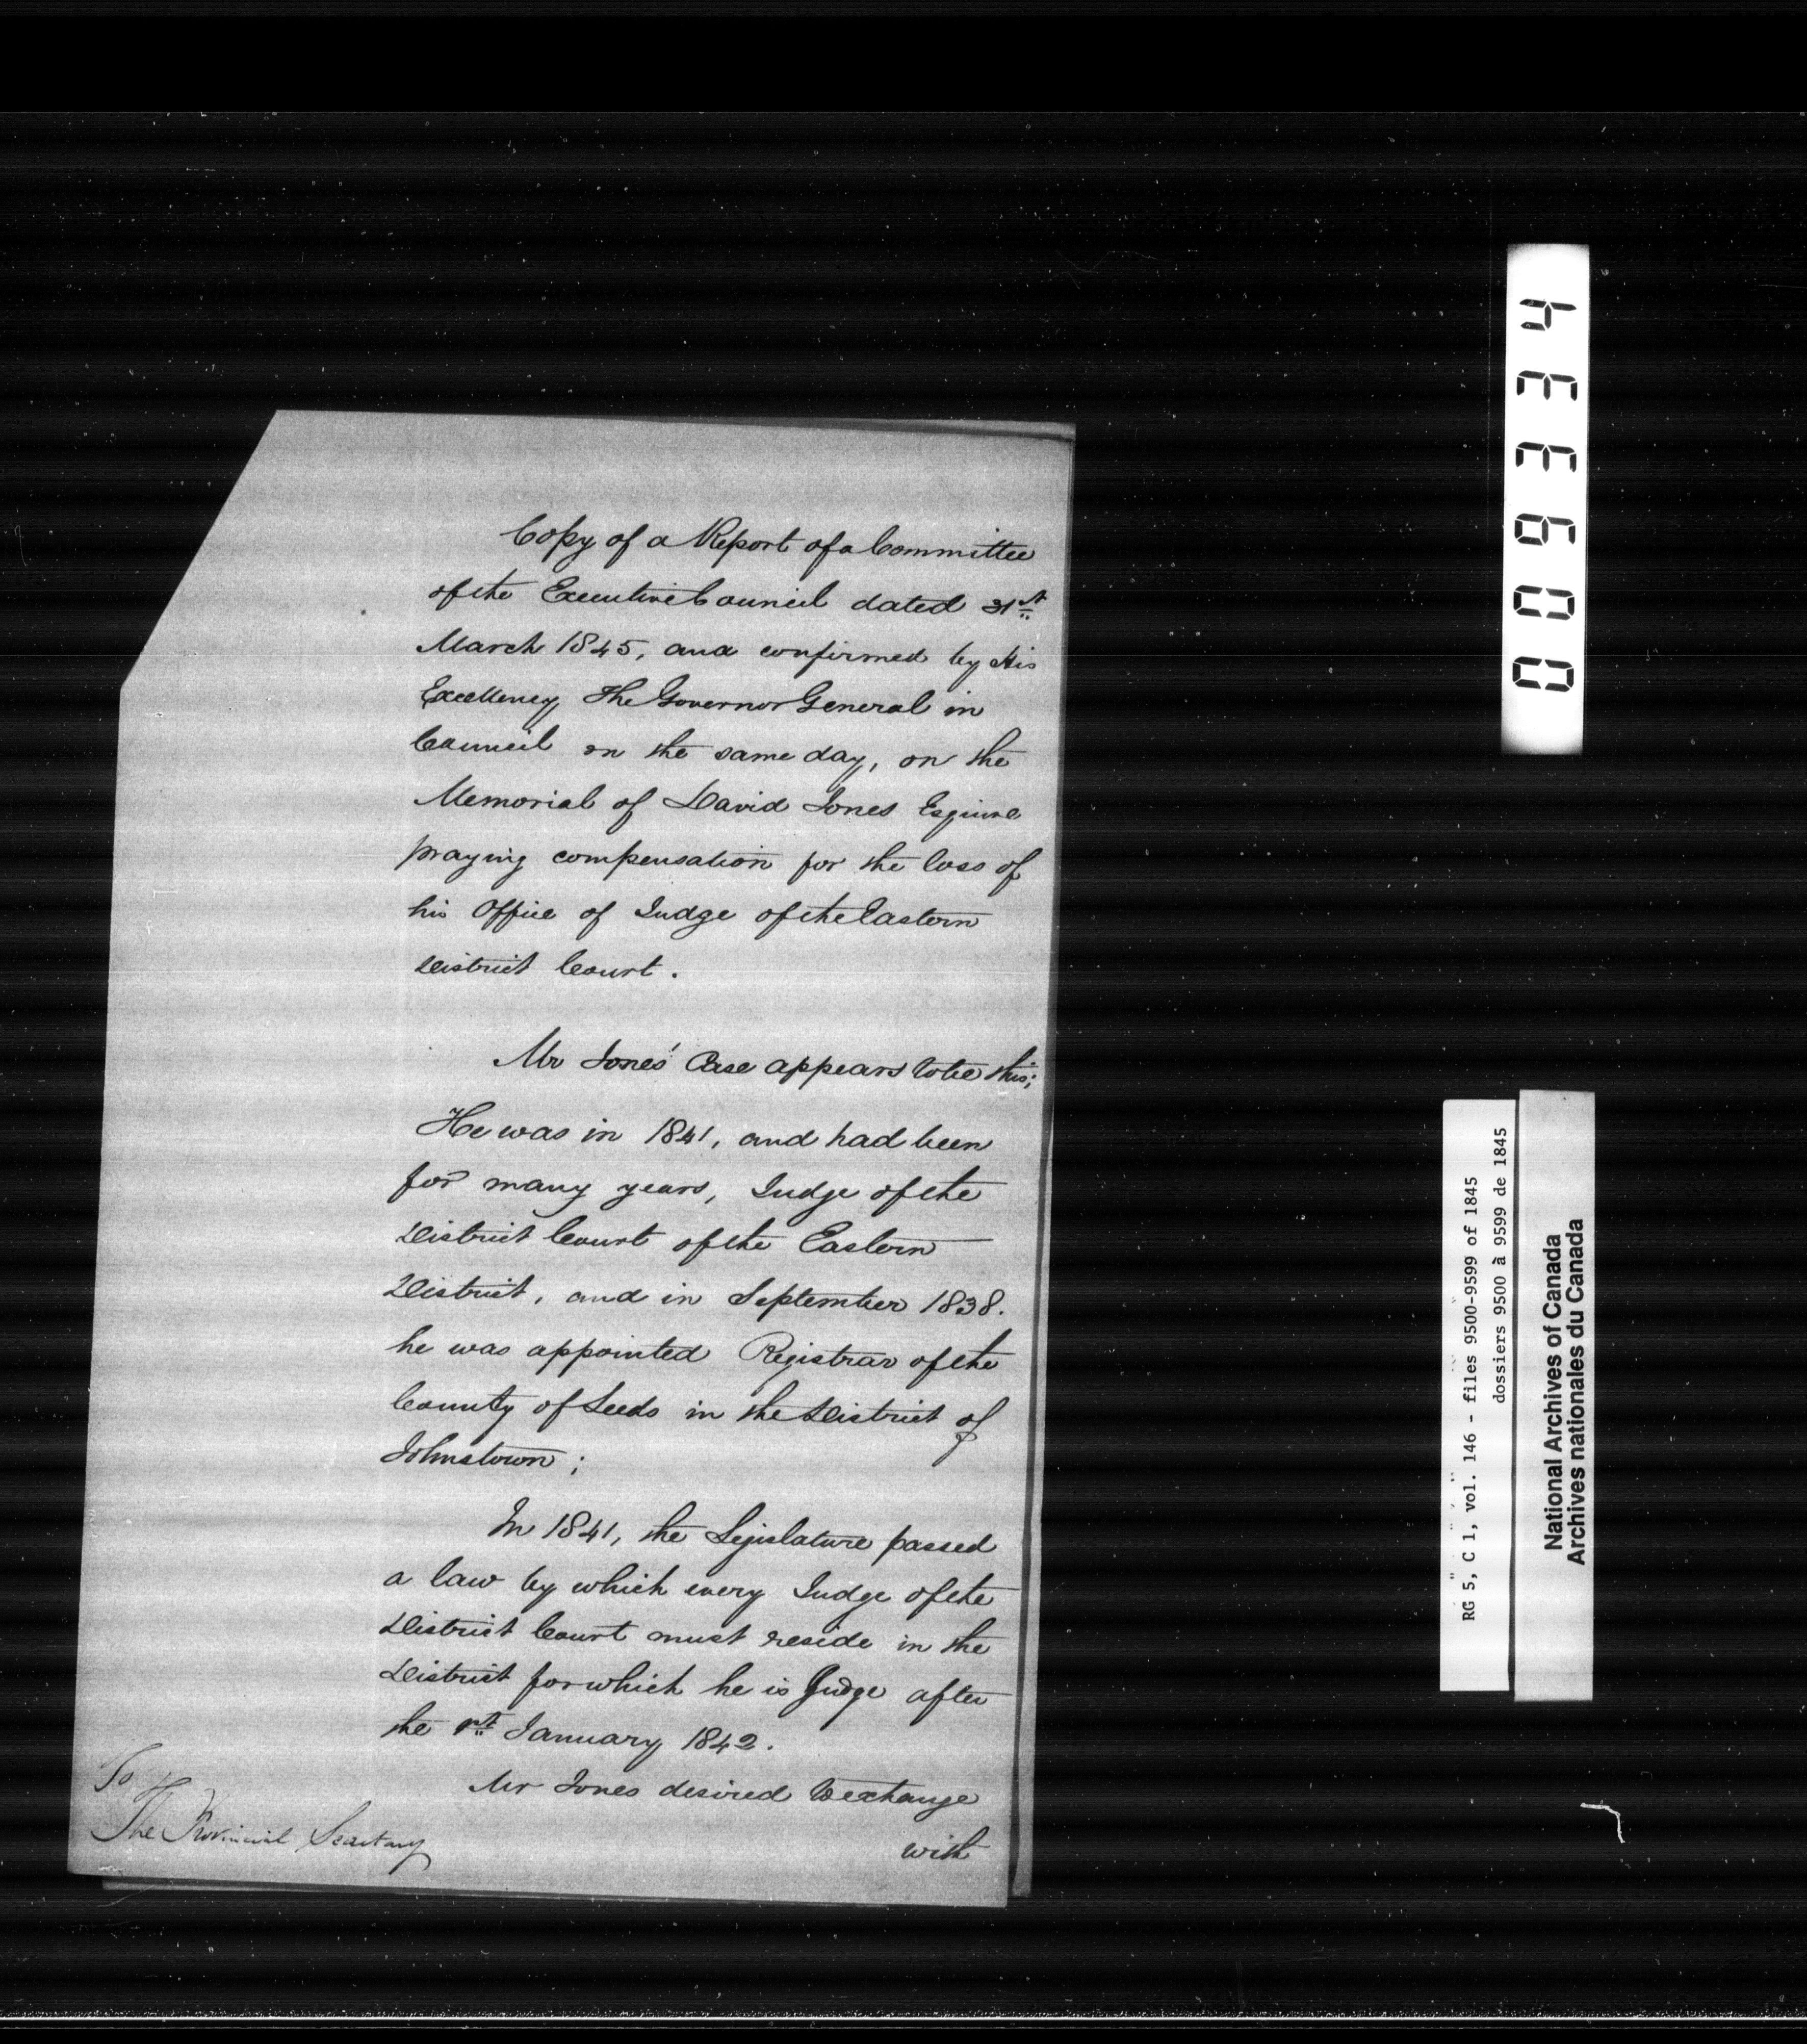 Copy of a Report of a Committee
of the Executive Council dated 31st
March 1845, and confirmed by His
Excellency The Governor General in
Council on the same day, on the
Memorial of David Jones Esquire
praying compensation for the loss of
his Office of Judge of the Eastern
District Court.
Mr Jones' Case appears to be this;
He was in 1841, and had been
for many years, Judge of the
District Court of the Eastern
District, and in September 1838.
he was appointed Registrar of the
County of Leeds in the District of
Johnstown;
In 1841, the Legislature passed
a law by which every Judge of the
District Court must reside in the
District for which he is Judge after
the 1st January 1842.
Mr Jones desired to exchange
with
To
The Provincial Secretary
009334
RG 5, C 1, vol. 146 - files 9500-9599 of 1845
dossiers 9500 à 9599 de 1845
National Archives of Canada
Archives nationales du Canada